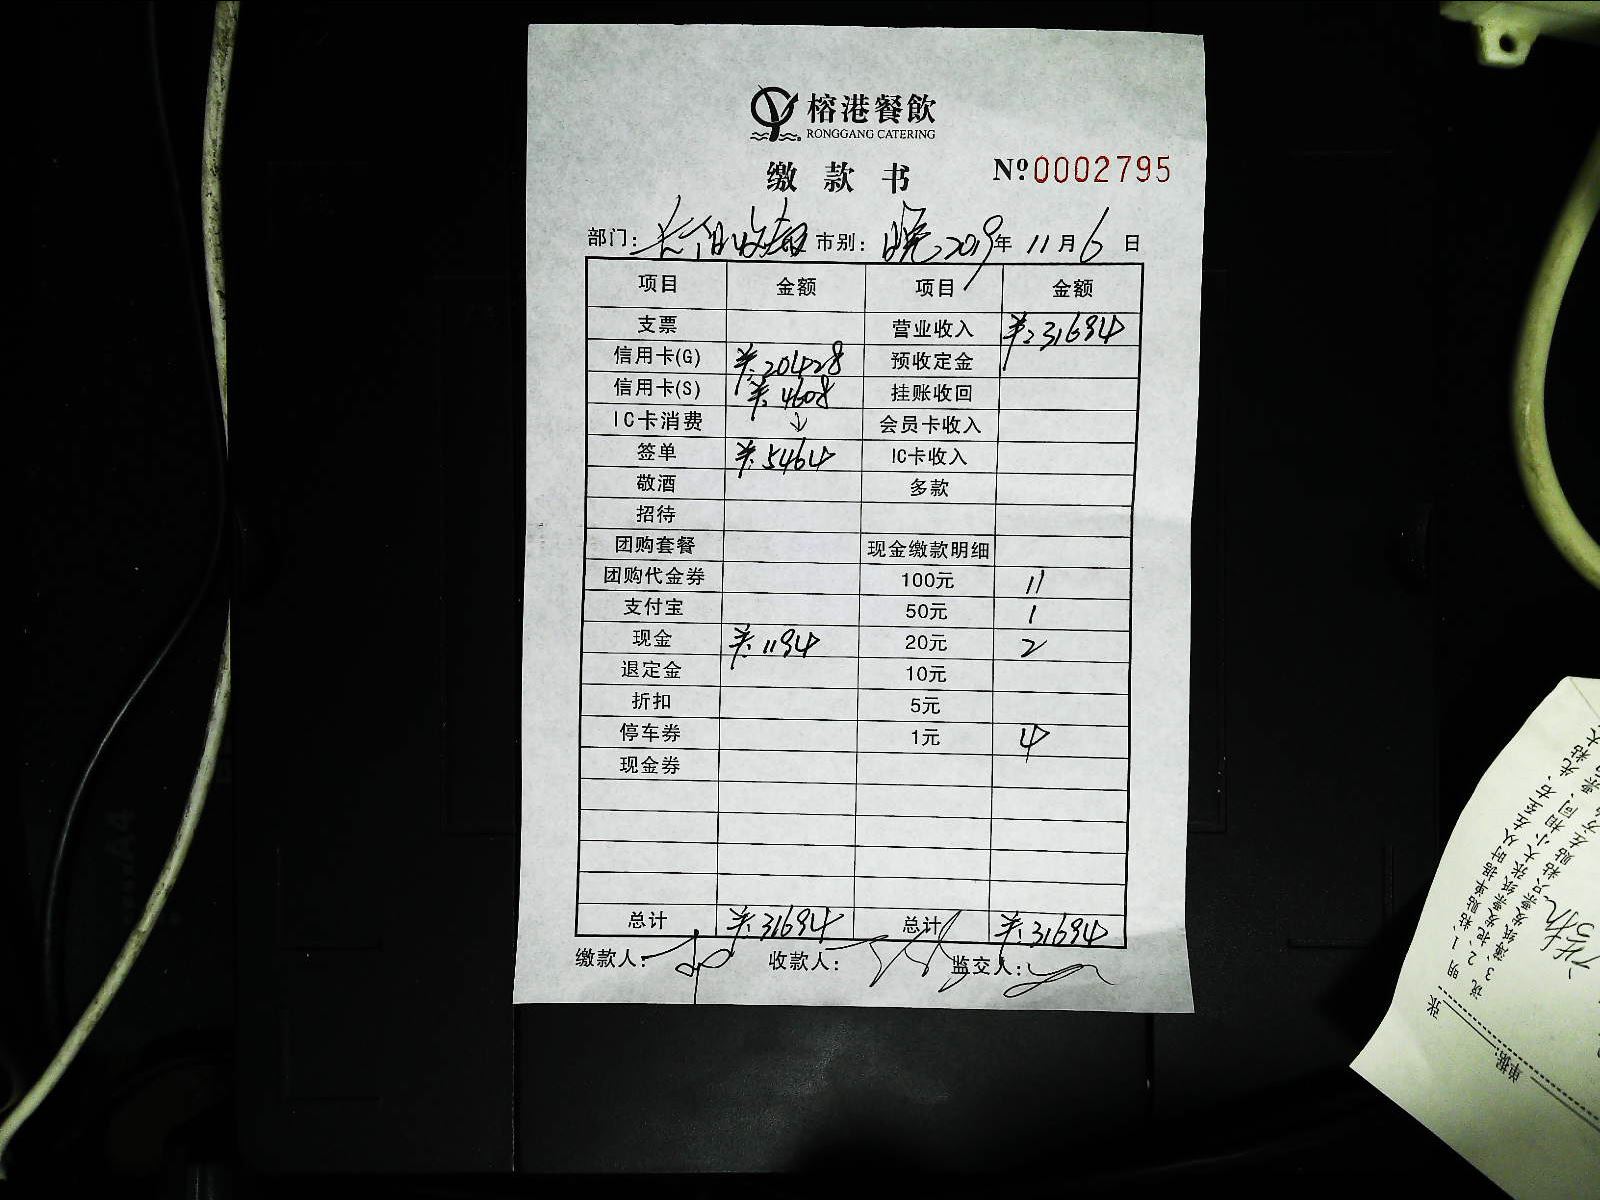 榕港餐飲
RONGGANG CATERING
缴款书 Nº 0002795
部门: 市别: 晚 2019年 11月 6日
项目 金额 项目 金额
支票 营业收入 ¥:31694
信用卡(G) ¥:20428 预收定金
信用卡(S) ¥:4608 挂账收回
IC卡消费 ↓ 会员卡收入
签单 ¥:5464 IC卡收入
敬酒 多款
招待
团购套餐 现金缴款明细
团购代金券 100元 11
支付宝 50元 1
现金 ¥:1194 20元 2
退定金 10元
折扣 5元
停车券 1元 4
现金券
总计 ¥:31694 总计 ¥:31694
缴款人: 收款人: 监交人:
张
单据: